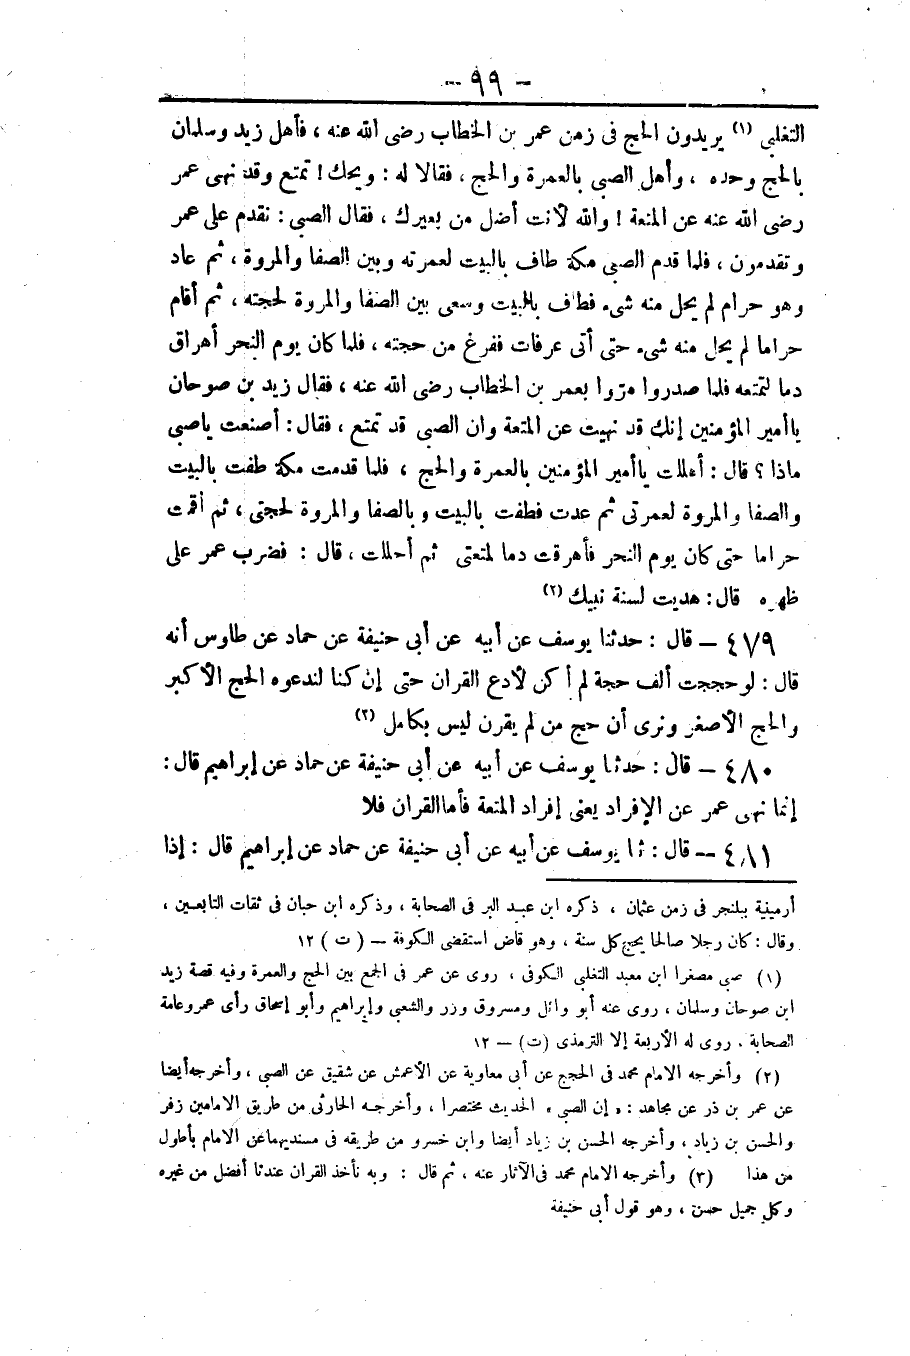 — ٩٩ —
التغلبى (١) يريدون الحج فى زمن عمر بن الخطاب رضى الله عنه ، فأهل زيد وسلمان
بالحج وحده ، وأهل الصبى بالعمرة والحج ، فقالا له : ويحك ! تمتع وقد نهى عمر
رضى الله عنه عن المتعة ! والله لأنت أضل من بعيرك ، فقال الصبى : نقدم على عمر
وتقدمون ، فلما قدم الصبى مكة طاف بالبيت لعمرته وبين الصفا والمروة ، ثم عاد
وهو حرام لم يحل منه شىء فطاف بالبيت وسعى بين الصفا والمروة لحجته ، ثم أقام
حراما لم يحل منه شىء حتى أتى عرفات ففرغ من حجته ، فلما كان يوم النحر أهراق
دما لتمتعه فلما صدروا مرّوا بعمر بن الخطاب رضى الله عنه ، فقال زيد بن صوحان
ياأمير المؤمنين إنك قد نهيت عن المتعة وان الصبى قد تمتع ، فقال : أصنعت ياصبى
ماذا ؟ قال : أهللت ياأمير المؤمنين بالعمرة والحج ، فلما قدمت مكة طفت بالبيت
والصفا والمروة لعمرتى ثم عدت فطفت بالبيت وبالصفا والمروة لحجتى ، ثم أقمت
حراما حتى كان يوم النحر فأهرقت دما لمتعتى ثم أحللت ، قال : فضرب عمر على
ظهره قال : هديت لسنة نبيك (٢)
٤٧٩ — قال : حدثنا يوسف عن أبيه عن أبى حنيفة عن حماد عن طاوس أنه
قال : لو حججت ألف حجة لم أكن لأدع القران حتى إن كنا لندعوه الحج الأكبر
والحج الأصغر ونرى أن حج من لم يقرن ليس بكامل (٣)
٤٨٠ — قال : حدثنا يوسف عن أبيه عن أبى حنيفة عن حماد عن إبراهيم قال :
إنما نهى عمر عن الإفراد يعنى إفراد المتعة فأما القران فلا
٤٨١ — قال : ثنا يوسف عن أبيه عن أبى حنيفة عن حماد عن إبراهيم قال : إذا
أرمينية ببلنجر فى زمن عثمان ، ذكره ابن عبد البر فى الصحابة ، وذكره ابن حبان فى ثقات التابعين ،
وقال : كان رجلا صالحا يحج كل سنة ، وهو قاض استقضى الكوفة — ( ت ) ١٢
(١) صبى مصغرا ابن معبد التغلبى الكوفى ، روى عن عمر فى الجمع بين الحج والعمرة وفيه قصة زيد
ابن صوحان وسلمان ، روى عنه أبو وائل ومسروق وزر والشعبى وإبراهيم وأبو إسحاق رأى عمر وعامة
الصحابة . روى له الأربعة إلا الترمذى (ت) — ١٢
(٢) وأخرجه الامام محمد فى الحجج عن أبى معاوية عن الأعمش عن شقيق عن الصبى ، وأخرجه أيضا
عن عمر بن ذر عن مجاهد : « إن الصبى » الحديث مختصرا ، وأخرجه الحارثى من طريق الامامين زفر
والحسن بن زياد ، وأخرجه الحسن بن زياد أيضا وابن خسرو من طريقه فى مسنديهما عن الامام بأطول
من هذا (٣) وأخرجه الامام محمد فى الآثار عنه ، ثم قال : وبه نأخذ القران عندنا أفضل من غيره
وكل جميل حسن ، وهو قول أبى حنيفة